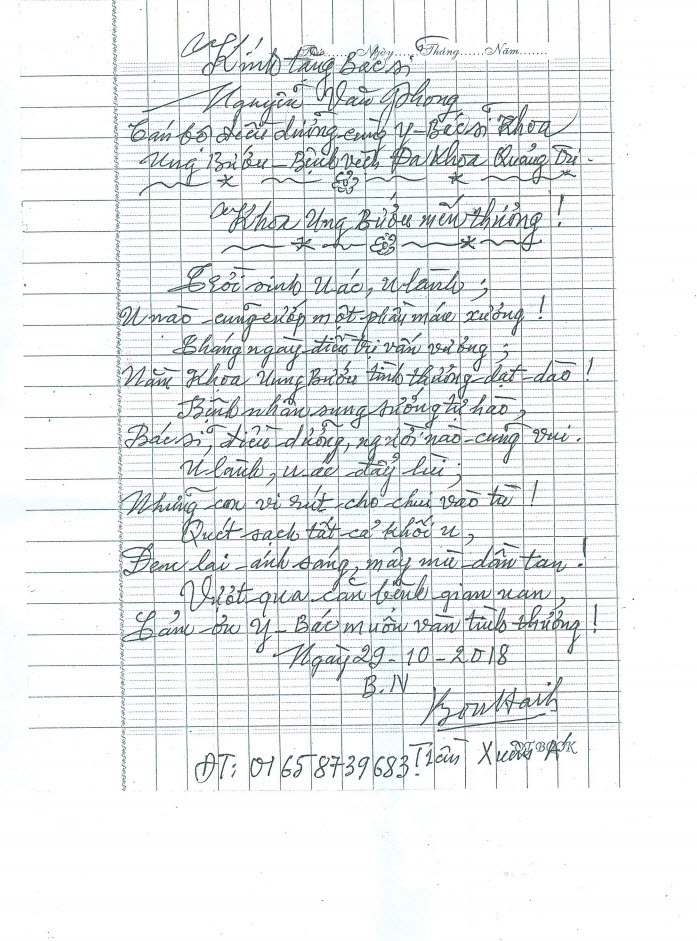 Thứ......Ngày......Tháng......Năm.......
Kính tặng Bác sĩ
Nguyễn Văn Phong
Cán bộ điều dưỡng cùng Y-Bác sĩ Khoa
Ung Bướu - Bệnh viện Đa Khoa Quảng Trị.
Khoa Ung Bướu mến thương!
Trời sinh U ác, U lành;
U nào cũng cướp một phần máu xương!
Tháng ngày điều trị vấn vương;
Nằm Khoa Ung Bướu tình thương dạt dào!
Bệnh nhân sung sướng tự hào,
Bác sĩ, điều dưỡng, người nào cũng vui.
U lành, u ác đẩy lùi;
Những con vi rút cho chui vào tù!
Quét sạch tất cả khối u,
Đem lại ánh sáng, mây mù dần tan!
Vượt qua căn bệnh gian nan,
Cảm ơn Y-Bác muôn vàn tình thương!
Ngày 29-10-2018
B.N
Trần Xuân
ĐT: 01658739683.